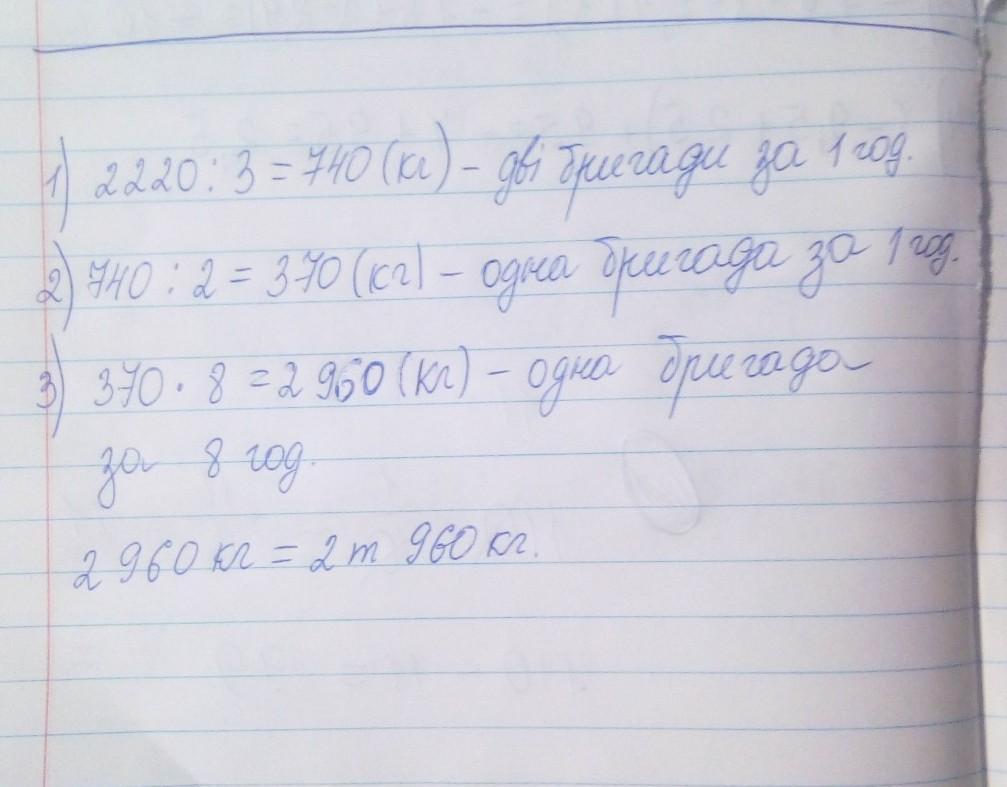 1) 2220 : 3 = 740 (кг) – дві бригади за 1 год.
2) 740 : 2 = 370 (кг) – одна бригада за 1 год.
3) 370 · 8 = 2 960 (кг) – одна бригада
за 8 год.
2 960 кг = 2 т 960 кг.